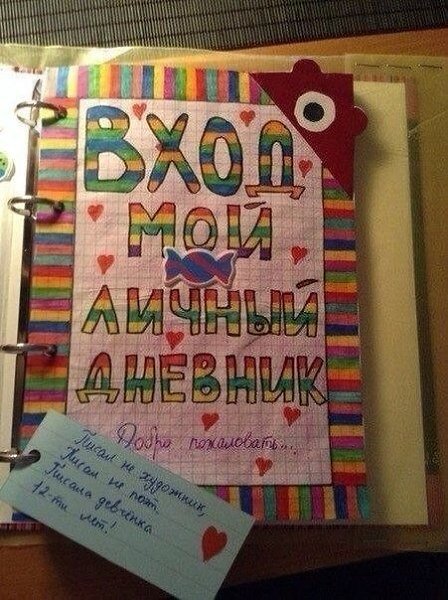 ВХОД
МОЙ
ЛИЧНЫЙ
ДНЕВНИК
Добро пожаловать...
Писал не художник,
Писал не поэт.
Писала девчёнка
12-ти лет!